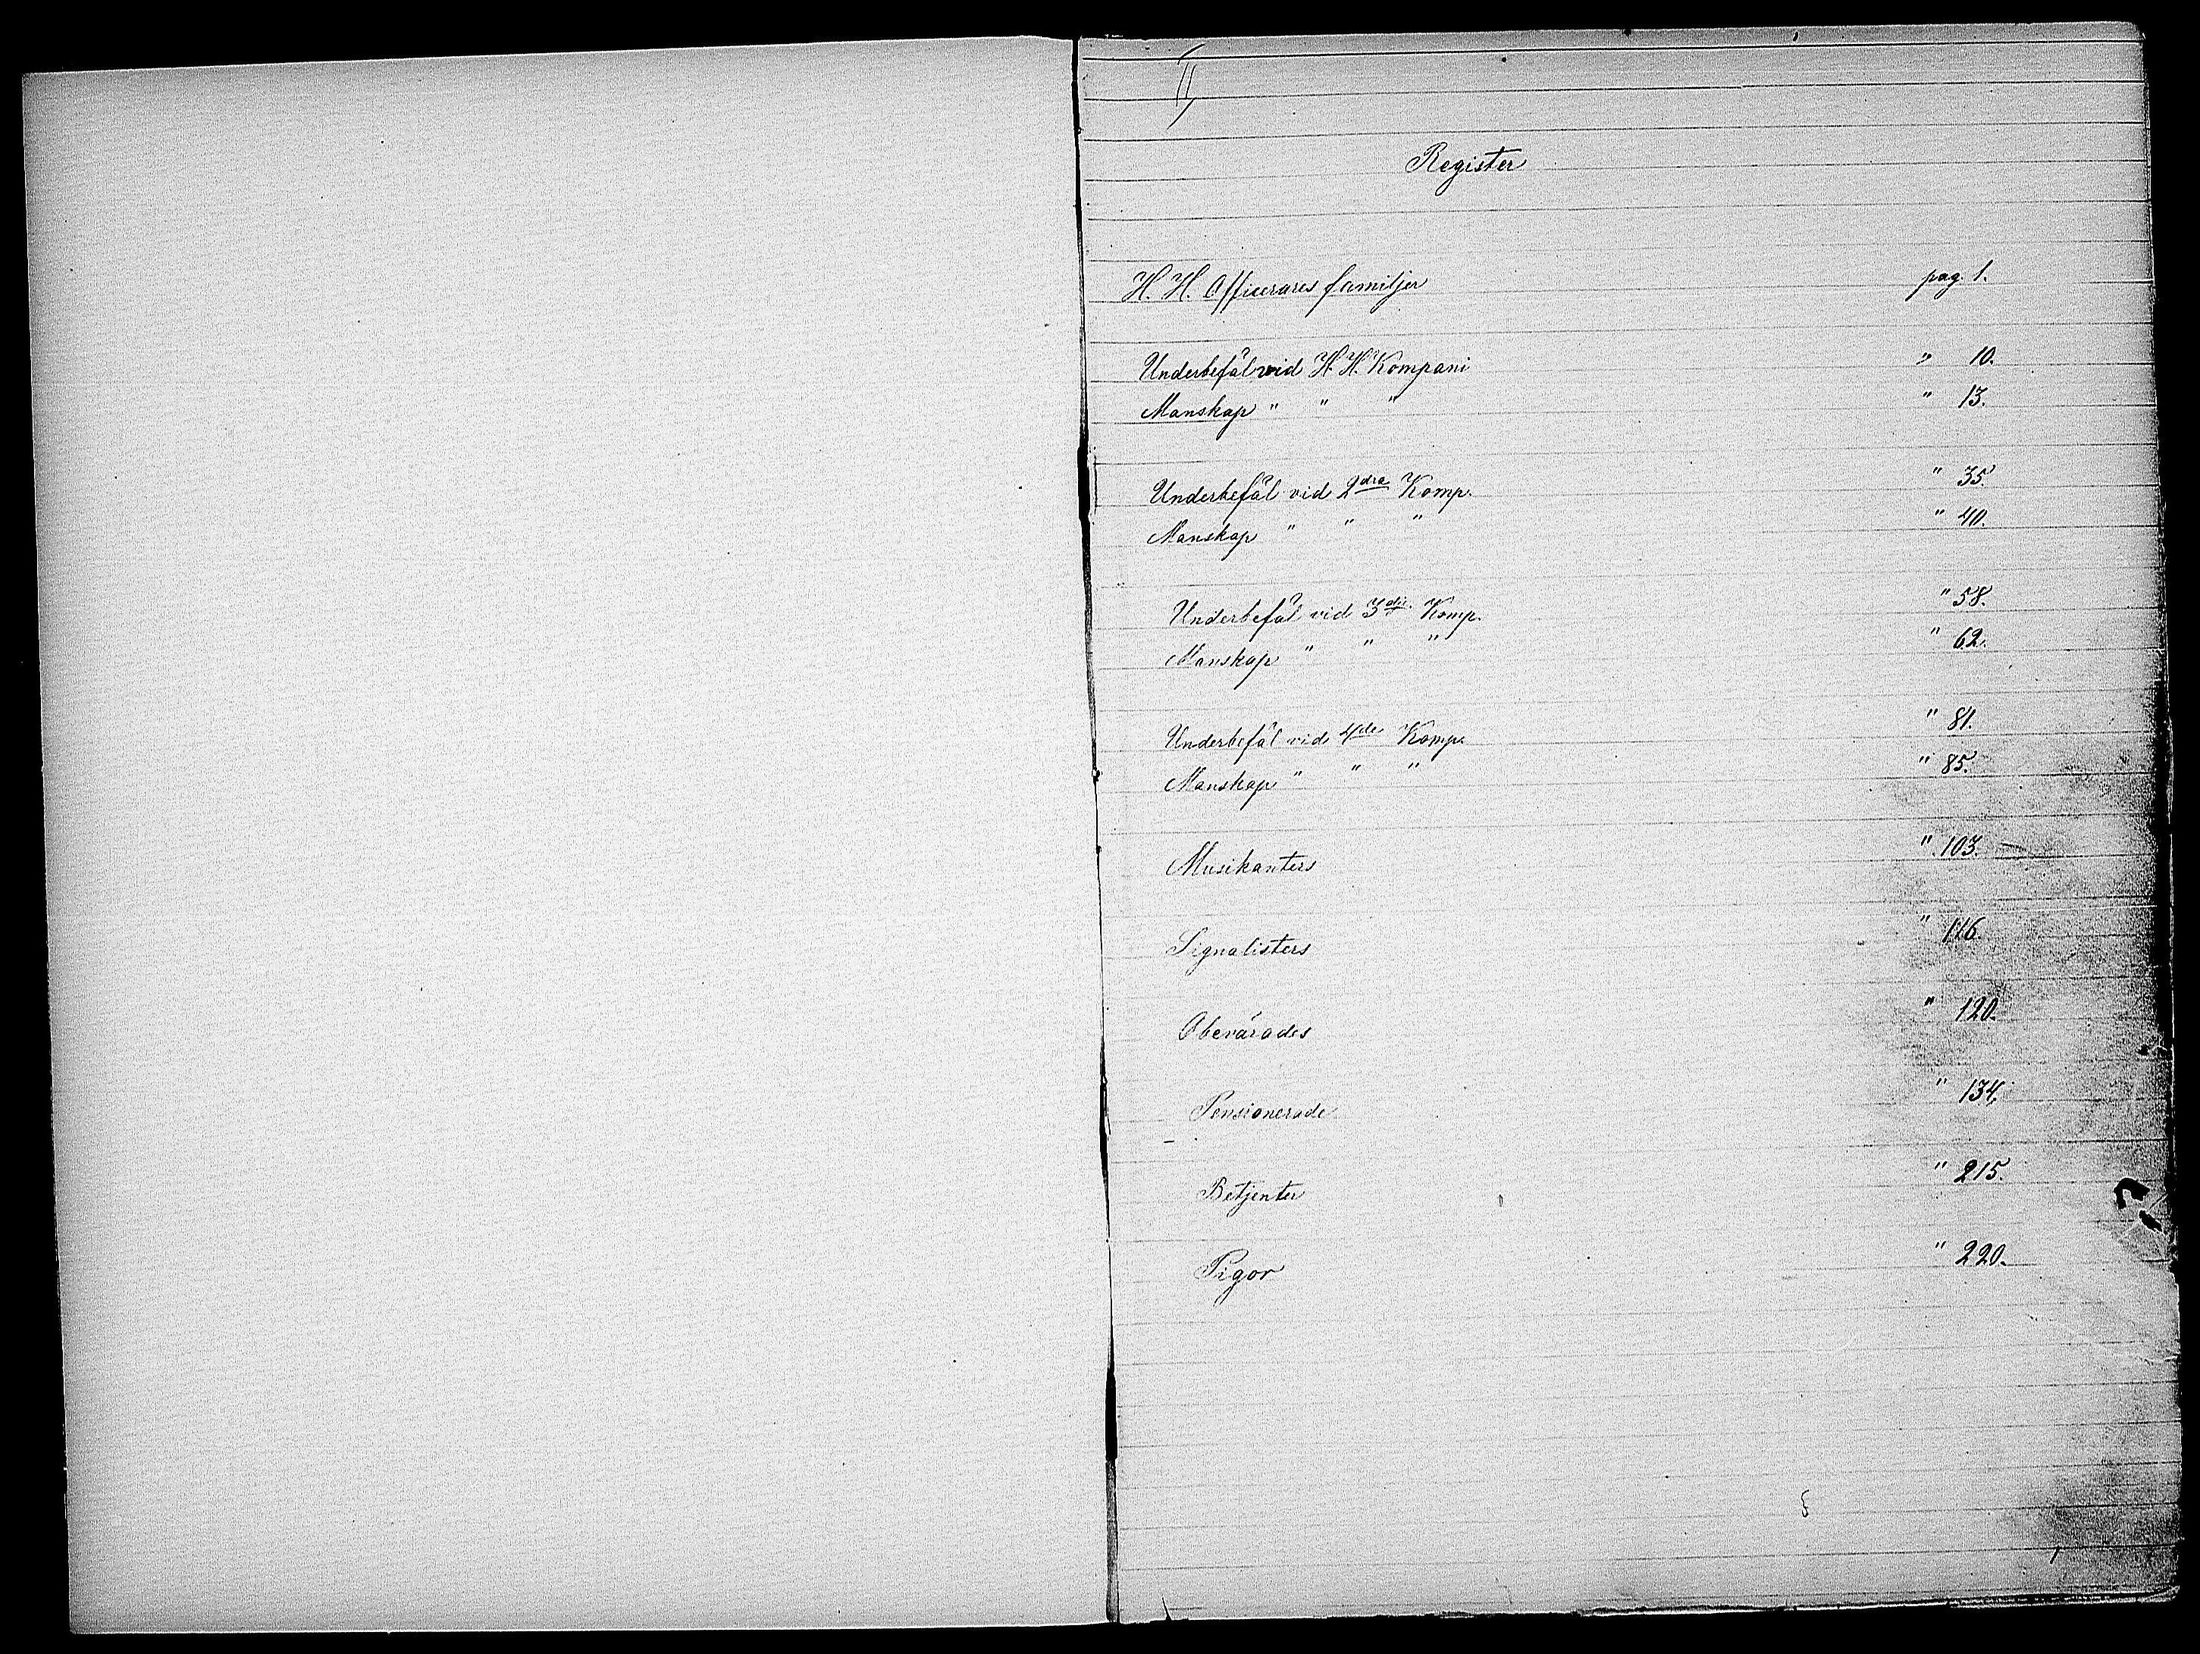 Register
H. H. Officerares familjer pag. 1.
Underbefäl vid H. H. Kompani " 10.
Manskap " " " " 13.
Underbefäl vid 2dra Komp. " 35.
Manskap " " " " 40.
Underbefäl vid 3die Komp. " 58.
Manskap " " " " 62.
Underbefäl vid 4de Komp. " 81.
Manskap " " " " 85.
Musikanters " 103.
Signalisters " 116.
Obevärades " 120.
Pensionerade " 134.
Betjenter " 215.
Pigor " 220.